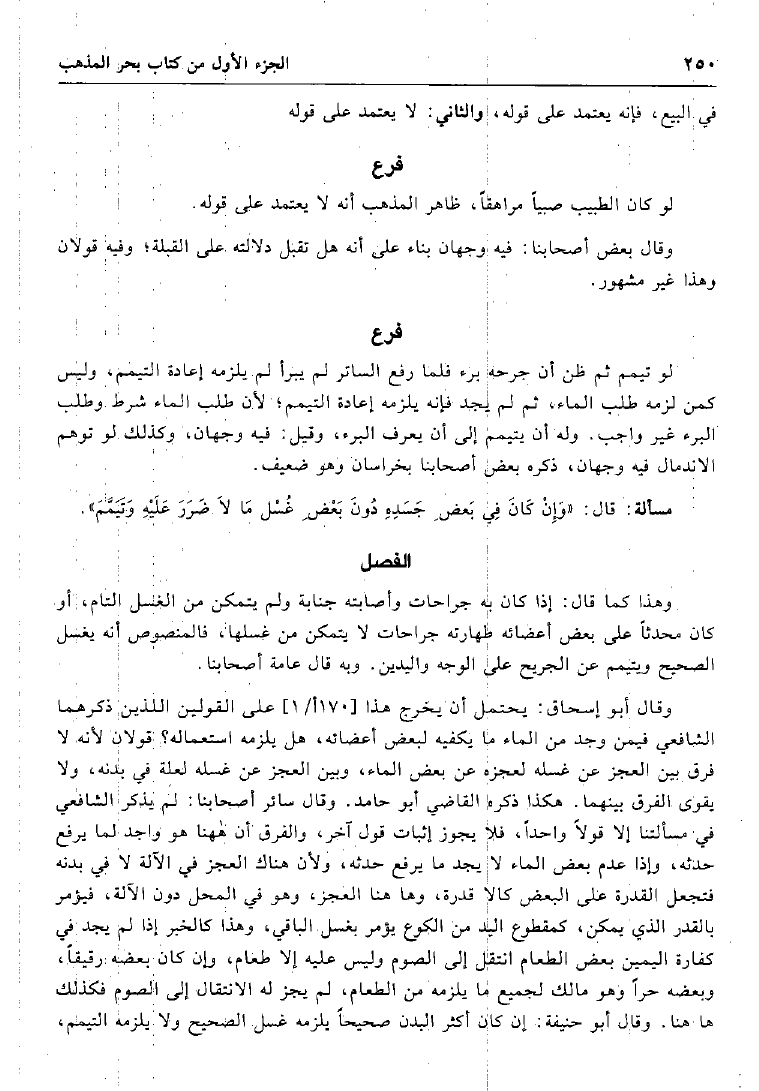 ٢٥٠ الجزء الأول من كتاب بحر المذهب
في البيع، فإنه يعتمد على قوله، والثاني: لا يعتمد على قوله
فرع
لو كان الطبيب صبياً مراهقاً، ظاهر المذهب أنه لا يعتمد على قوله.
وقال بعض أصحابنا: فيه وجهان بناء على أنه هل تقبل دلالته على القبلة؛ وفيه قولان
وهذا غير مشهور.
فرع
لو تيمم ثم ظن أن جرحه برء فلما رفع الساتر لم يبرأ لم يلزمه إعادة التيمم، وليس
كمن لزمه طلب الماء، ثم لم يجد فإنه يلزمه إعادة التيمم؛ لأن طلب الماء شرط وطلب
البرء غير واجب. وله أن يتيمم إلى أن يعرف البرء، وقيل: فيه وجهان، وكذلك لو توهم
الاندمال فيه وجهان، ذكره بعض أصحابنا بخراسان وهو ضعيف.
مسألة: قال: «وَإِنْ كَانَ فِي بَعْضِ جَسَدِهِ دُونَ بَعْضٍ غُسْل مَا لاَ ضَرَرَ عَلَيْهِ وَتَيَمَّمَ».
الفصل
وهذا كما قال: إذا كان به جراحات وأصابته جنابة ولم يتمكن من الغسل التام، أو
كان محدثاً على بعض أعضائه طهارته جراحات لا يتمكن من غسلها، فالمنصوص أنه يغسل
الصحيح ويتيمم عن الجريح على الوجه واليدين. وبه قال عامة أصحابنا.
وقال أبو إسحاق: يحتمل أن يخرج هذا [١٧٠أ/ ١] على القولين اللذين ذكرهما
الشافعي فيمن وجد من الماء ما يكفيه لبعض أعضائه، هل يلزمه استعماله؟ قولان لأنه لا
فرق بين العجز عن غسله لعجزه عن بعض الماء، وبين العجز عن غسله لعلة في بدنه، ولا
يقوى الفرق بينهما. هكذا ذكره القاضي أبو حامد. وقال سائر أصحابنا: لم يذكر الشافعي
في مسألتنا إلا قولاً واحداً، فلا يجوز إثبات قول آخر، والفرق أن ههنا هو واجد لما يرفع
حدثه، وإذا عدم بعض الماء لا يجد ما يرفع حدثه، ولأن هناك العجز في الآلة لا في بدنه
فتجعل القدرة على البعض كالا قدرة، وها هنا العجز، وهو في المحل دون الآلة، فيؤمر
بالقدر الذي يمكن، كمقطوع اليد من الكوع يؤمر بغسل الباقي، وهذا كالخبر إذا لم يجد في
كفارة اليمين بعض الطعام انتقل إلى الصوم وليس عليه إلا طعام، وإن كان بعضه رقيقاً،
وبعضه حراً وهو مالك لجميع ما يلزمه من الطعام، لم يجز له الانتقال إلى الصوم فكذلك
ها هنا. وقال أبو حنيفة: إن كان أكثر البدن صحيحاً يلزمه غسل الصحيح ولا يلزمه التيمم،